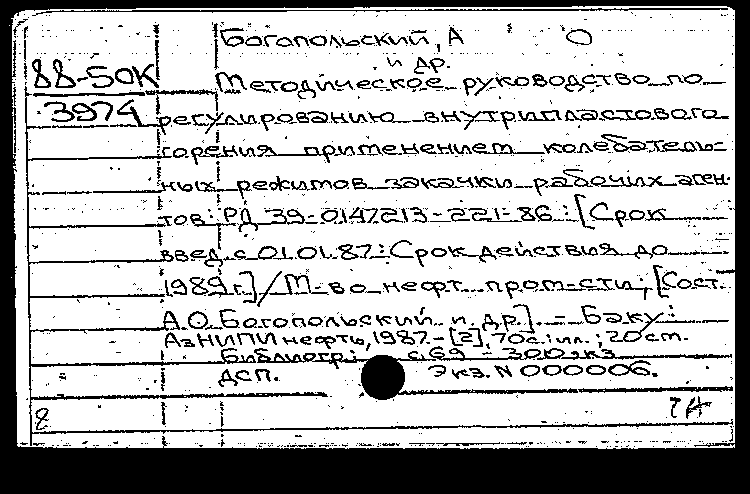 Богопольский, А О
и др.
88-50К Методическое руководство по
3974 регулированию внутрипластового
горения применением колебатель-
ных режимов закачки рабочих аген-
тов: РД 39-0147213-221-86: [Срок
введ. с 01.01.87: Срок действия до
1989 г.]/М-во нефт. пром-сти; [Сост.
А.О. Богопольский и др.]. - Баку:
АзНИПИнефть, 1987. - [2], 70 с.: ил.; 20 см.
Библиогр.: с. 69 - 300 экз.
ДСП. Экз. N 000006.